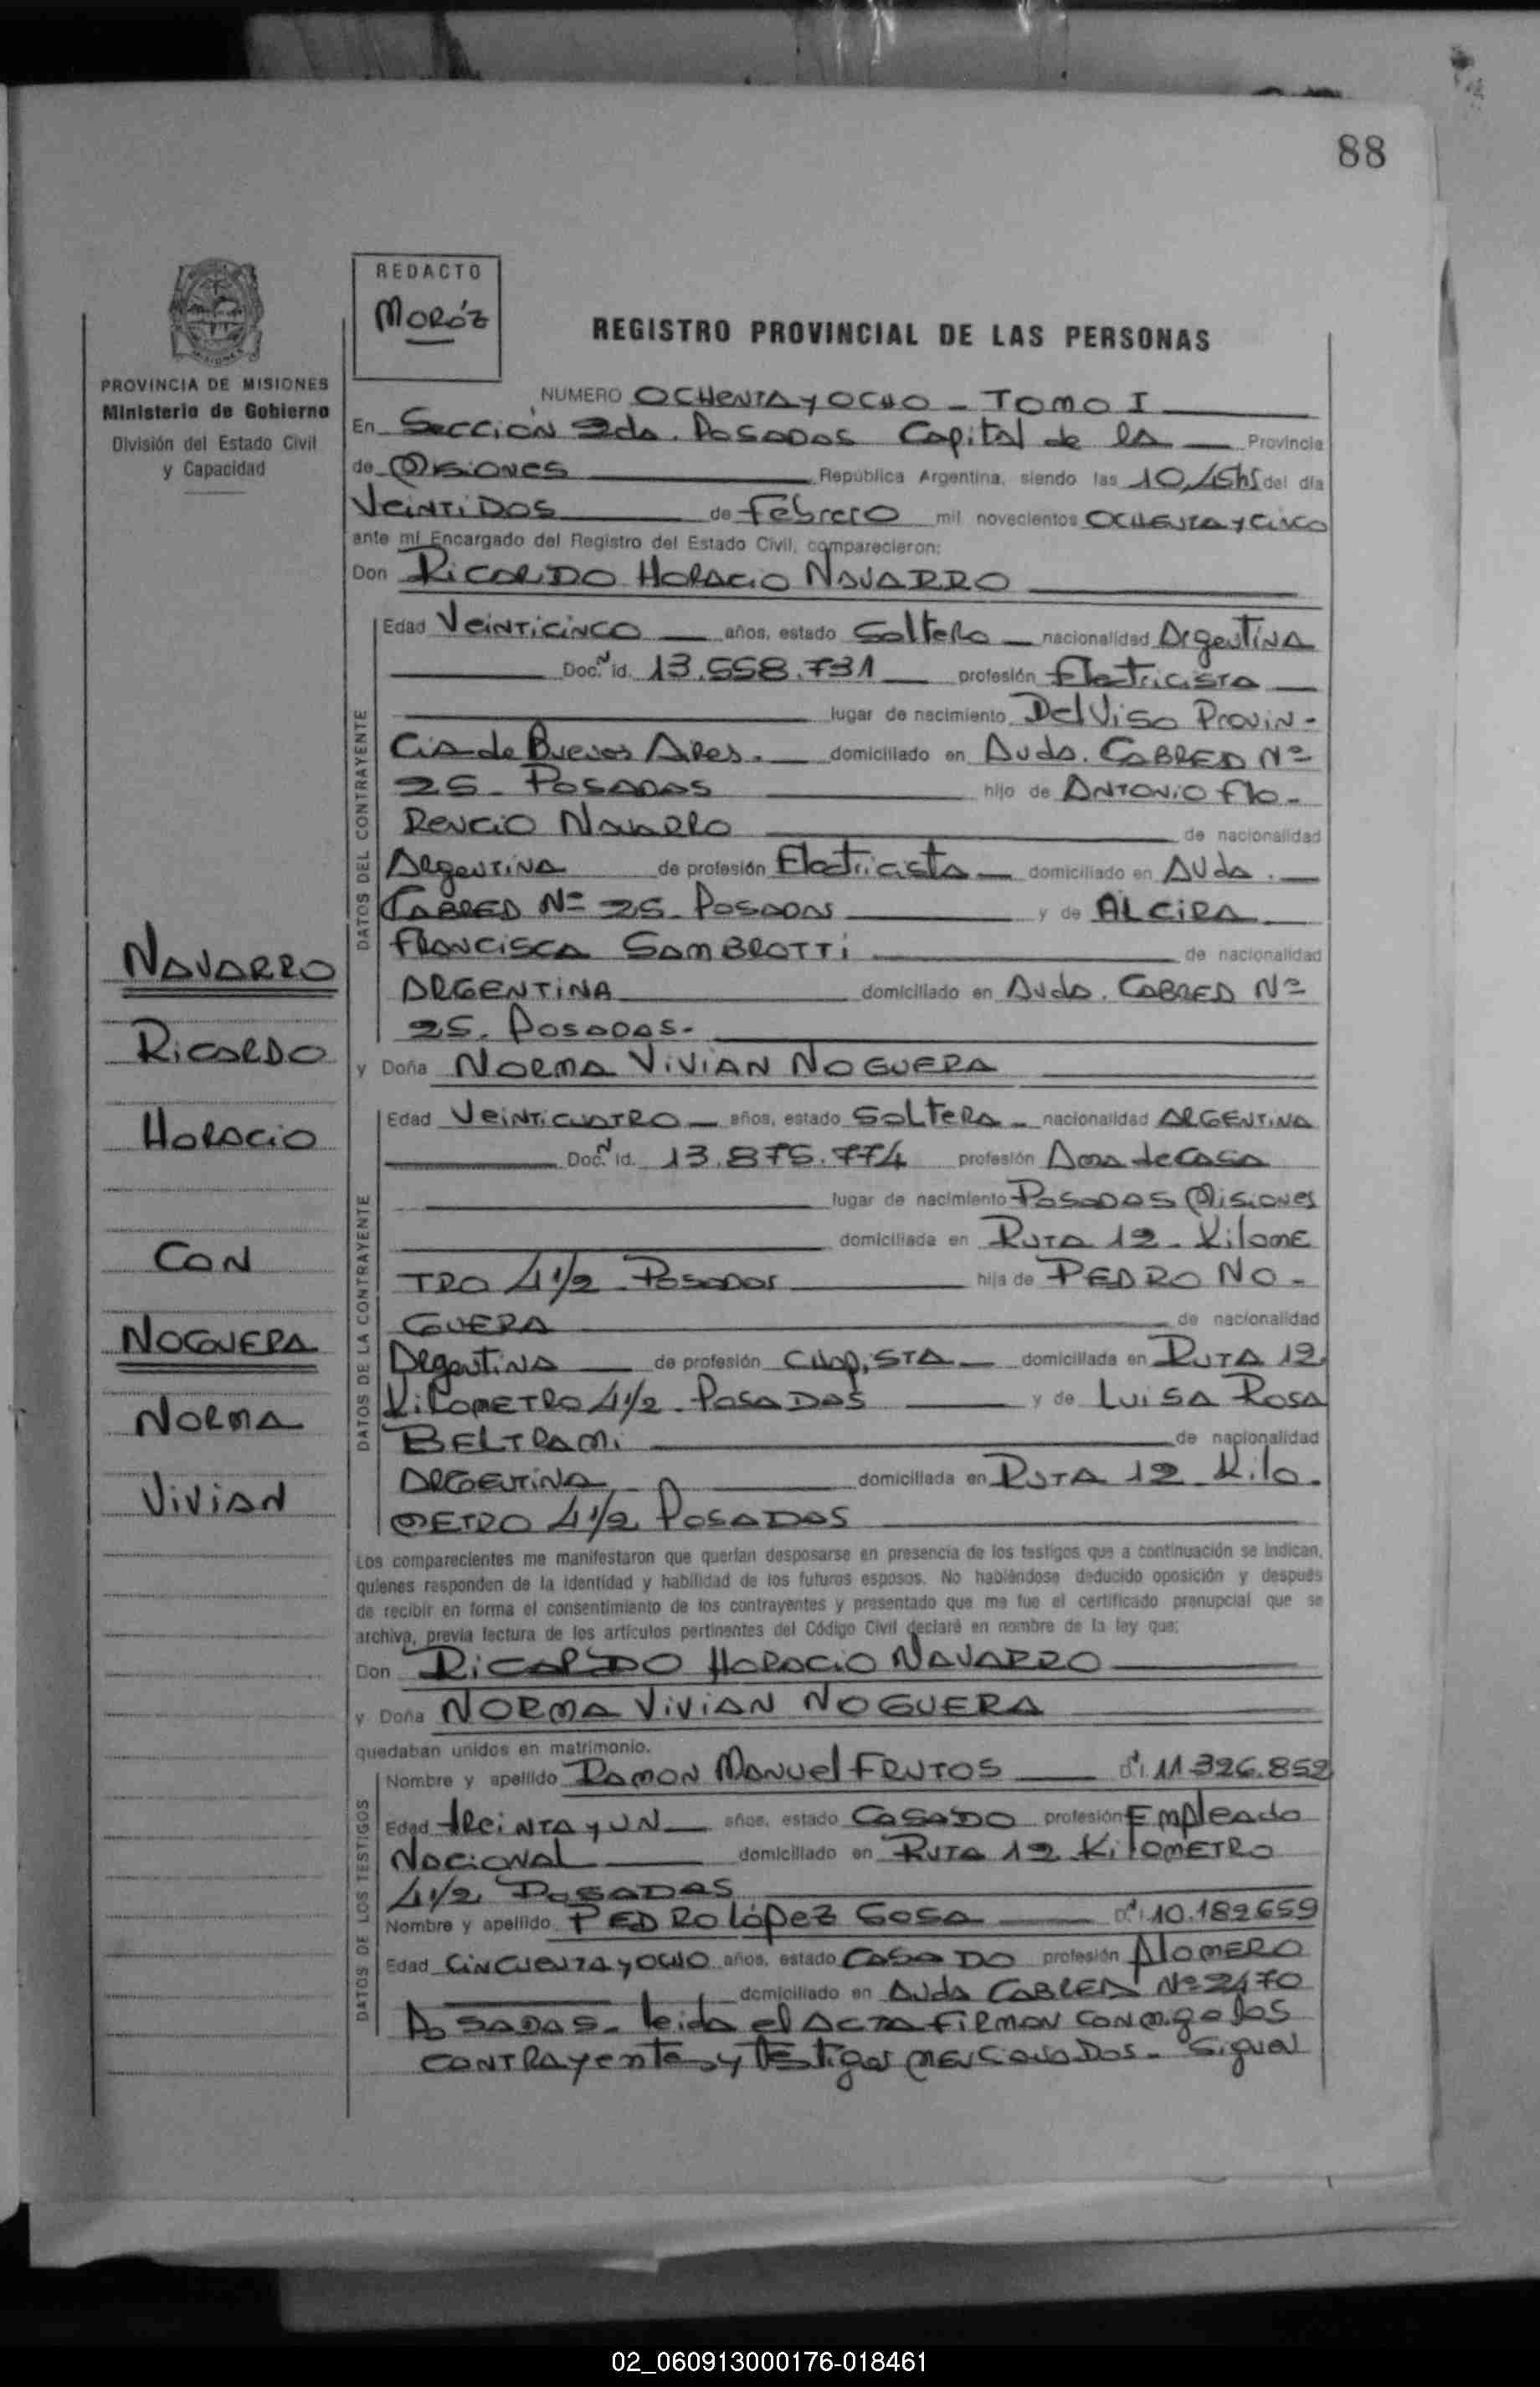 88
REDACTO
MORÓZ
REGISTRO PROVINCIAL DE LAS PERSONAS
PROVINCIA DE MISIONES
Ministerio de Gobierno
División del Estado Civil
y Capacidad
NUMERO OCHENTA y OCHO - TOMO I
En Sección 2da. Posadas Capital de la Provincia
de Misiones República Argentina, siendo las 10,15hs del día
Veintidos de Febrero mil novecientos OCHENTA y CiNCO
ante mí Encargado del Registro del Estado Civil, comparecieron:
Don RiCARDO HORACiO NAVARRO
DATOS DEL CONTRAYENTE
Edad VeiNTiCiNCO años, estado Soltero nacionalidad ArgentiNA
Doc. N id. 13.558.731 profesión Electricista
lugar de nacimiento Del Viso Provin-
cia de Buenos Aires. domiciliado en Avda. CABRED Nº
25 - POSADAS hijo de ANTONiO Flo-
RENCiO NAVARRO de nacionalidad
ArgentiNA de profesión Electricista domiciliado en AVda.
CABRED Nº 25 - Posadas y de ALCiRA
FRANCiSCA SAMBROTTi de nacionalidad
ARGENTiNA domiciliado en Avda. CABRED Nº
25. POSADAS.-
y Doña NORMA ViViAN NOGUERA
DATOS DE LA CONTRAYENTE
Edad VeiNTiCUATRO años, estado SOLTERA nacionalidad ARGENTiNA
Doc. N id. 13.875.774 profesión Ama de CASA
lugar de nacimiento POSADAS Misiones
domiciliada en RUTA 12 - Kilome
TRO 4 1/2 - Posadas hija de PEDRO NO-
GUERA de nacionalidad
ArgentiNA de profesión CHAPiSTA domiciliada en RUTA 12
KiLOMETRO 4 1/2 - POSADAS y de LUiSA ROSA
BELTRAMi de nacionalidad
ARGENTiNA domiciliada en RUTA 12 Kilo-
METRO 4 1/2 POSADAS
Los comparecientes me manifestaron que querían desposarse en presencia de los testigos que a continuación se indican,
quienes responden de la identidad y habilidad de los futuros esposos. No habiéndose deducido oposición y después
de recibir en forma el consentimiento de los contrayentes y presentado que me fue el certificado prenupcial que se
archiva, previa lectura de los artículos pertinentes del Código Civil declaré en nombre de la ley que:
Don RiCARDO HORACiO NAVARRO
y Doña NORMA ViViAN NOGUERA
quedaban unidos en matrimonio.
DATOS DE LOS TESTIGOS
Nombre y apellido RAMON MANUel FRUTOS 11.326.852
Edad treiNTA y UN años, estado CASADO profesión Empleado
NACiONAL domiciliado en RUTA 12 KiLOMETRO
4 1/2, POSADAS
Nombre y apellido PEDRO López SOSA 10.182659
Edad CiNCUENTA y OCHO años, estado CASADO profesión PlOMERO
domiciliado en AVda CABRED Nº 2470
POSADAS - leida el ACTA FiRMAN conmigo los
CONTRAyentes y testigos MENCiONADOS - Siguen
NAVARRO
RiCARDO
HORACiO
CON
NOGUERA
NORMA
ViViAN
02_060913000176-018461